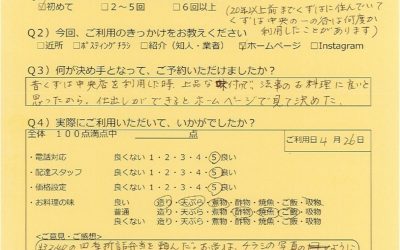 ☑初めて　□2～5回　□6回以上　(20年以上前までくずはに住んでいて
くずは中央の一の谷は何度か
利用したことがあります)
Q2）今回、ご利用のきっかけをお教えください
□近所　□ポスティングチラシ　□紹介（知人・業者）　☑ホームページ　□Instagram
Q3）何が決め手となって、ご予約いただけましたか？
昔くずは中央店を利用した時、上品な味付で、法事のお料理に良いと
思ったから。仕出しができるとホームページで見て決めた。
Q4）実際にご利用いただいて、いかがでしたか？
全体　100点満点中　　　　点
ご利用日4月26日
・電話対応　良くない 1・2・3・4・5 良い
・配達スタッフ　良くない 1・2・3・4・5 良い
・価格設定　良くない 1・2・3・4・5 良い
・お料理の味　良い　造り・天ぷら・煮物・酢物・焼魚・ご飯・吸物
普通　造り・天ぷら・煮物・酢物・焼魚・ご飯・吸物
良くない　造り・天ぷら・煮物・酢物・焼魚・ご飯・吸物
＜ご意見・ご感想＞
弁当を頼んだ。お造は、チラシの写真の ように